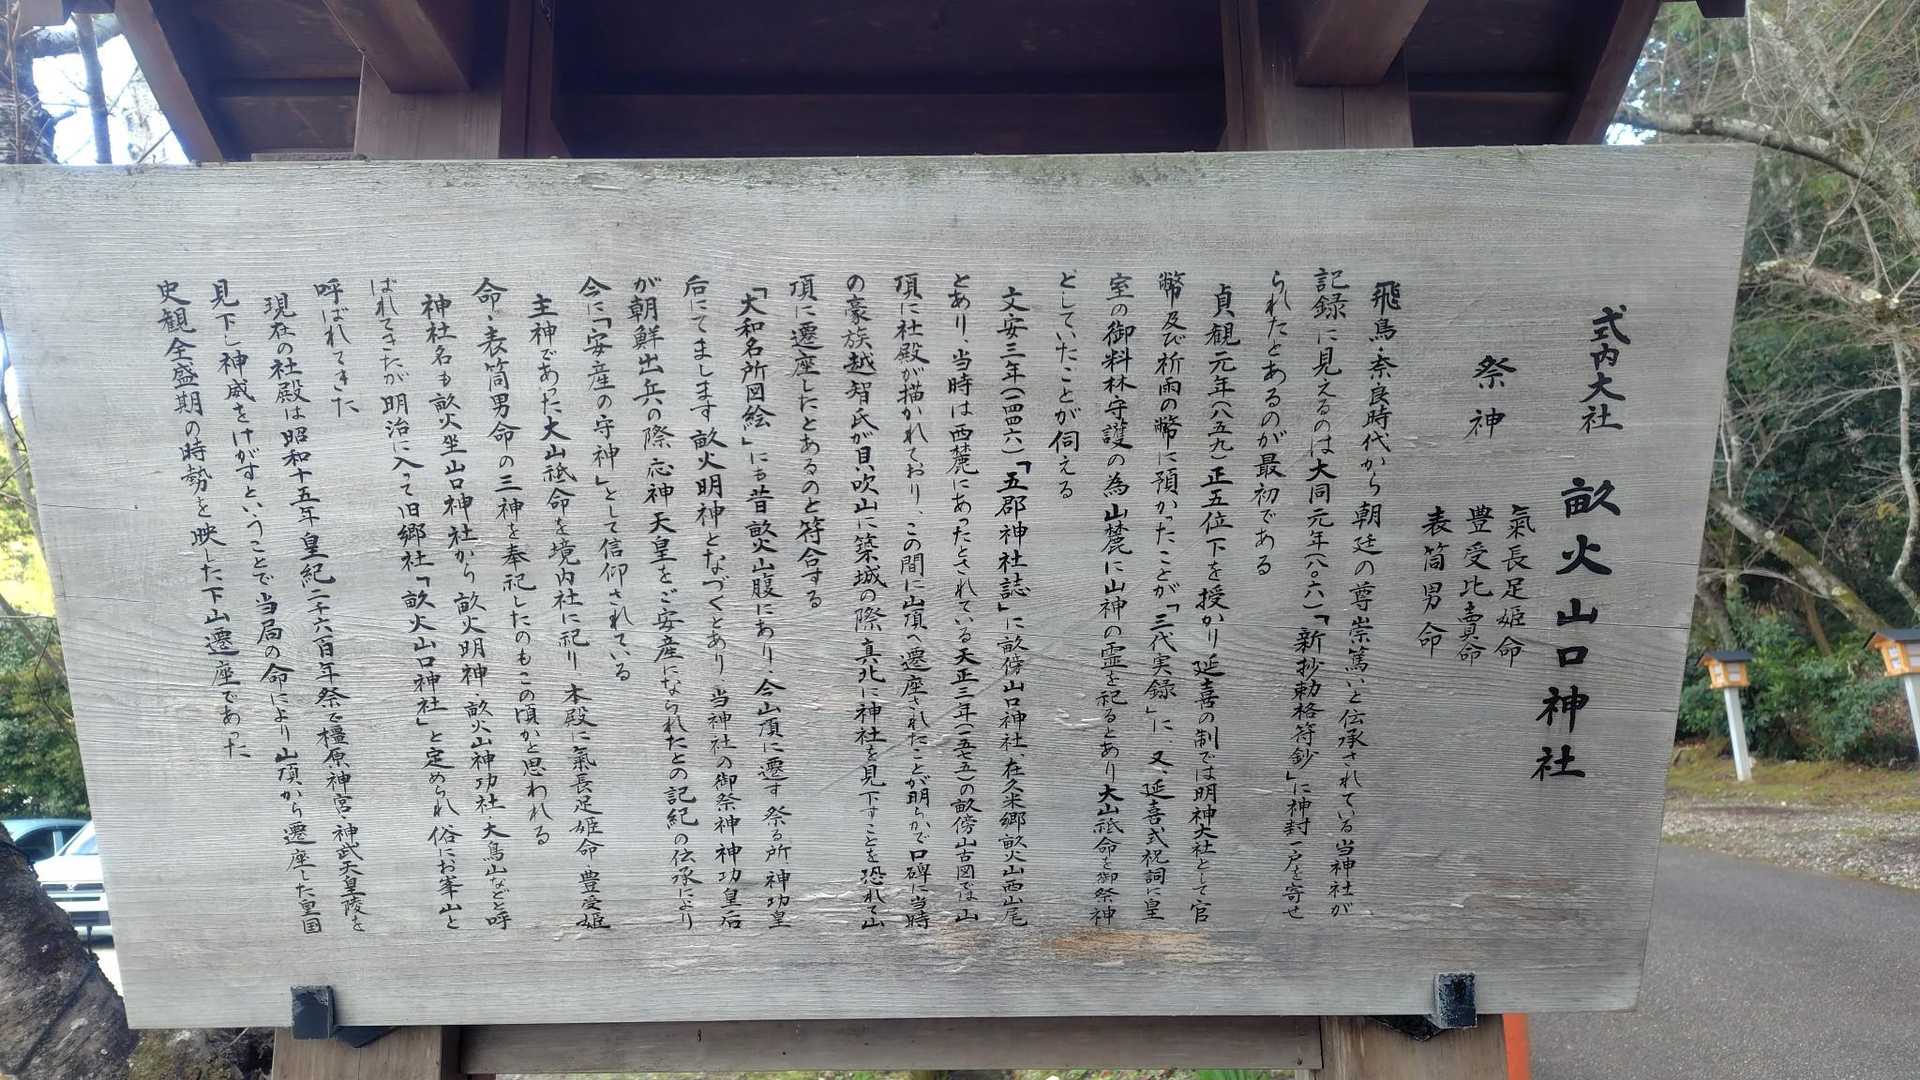 式内大社 畝火山口神社
祭神 氣長足姫命
豊受比売命
表筒男命
飛鳥・奈良時代から朝廷の尊崇篤いと伝承されている当神社が
記録に見えるのは大同元年(八〇六)「新抄勅格符鈔」に神封一戸を寄せ
られたとあるのが最初である
貞観元年(八五九)正五位下を授かり延喜の制では明神大社として官
幣及び祈雨の幣に預かったことが「三代実録」に、又、延喜式祝詞に皇
室の御料林守護の為山麓に山神の霊を祀るとあり大山祗命を御祭神
どしていたことが伺える
文安三年(一四四六)「五郡神社誌」に畝傍山口神社、在久米郷畝火山西山尾
とあり、当時は西麓にあったとされている天正三年(一五七五)の畝傍山古図では山
頂に社殿が描かれており、この間に山頂へ遷座されたことが明らかで口碑に当時
の豪族越智氏が貝吹山に築城の際真北に神社を見下すことを恐れて山
頂に遷座したとあるのと符合する
「大和名所図絵」にも昔畝火山腹にあり、今山頂に遷す 祭る所、神功皇
后にてまします畝火明神となづくとあり、当神社の御祭神神功皇后
が朝鮮出兵の際応神天皇をご安産になられたとの記紀の伝承により
今に「安産の守神」として信仰されている
主神であった大山祗命を境内社に祀り本殿に氣長足姫命・豊受姫
命・表筒男命の三神を奉祀したのもこの頃かと思われる
神社名も畝火坐山口神社から畝火明神・畝火山神功社・大鳥山などと呼
ばれてきたが明治に入って旧郷社「畝火山口神社」と定められ俗にお峯山と
呼ばれてきた
現在の社殿は昭和十五年皇紀二千六百年祭で橿原神宮・神武天皇陵を
見下し神威をけがすということで当局の命により山頂から遷座した皇国
史観全盛期の時勢を映した下山遷座であった